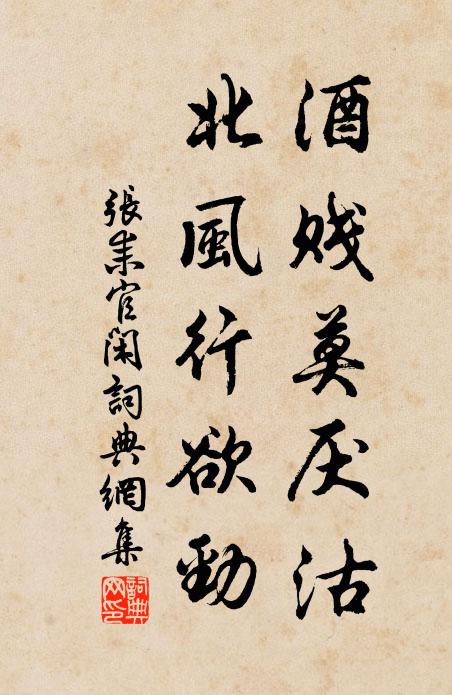 酒贱莫厌沽
北風行欲勁
張耒官閑詞典網集
詞典网印